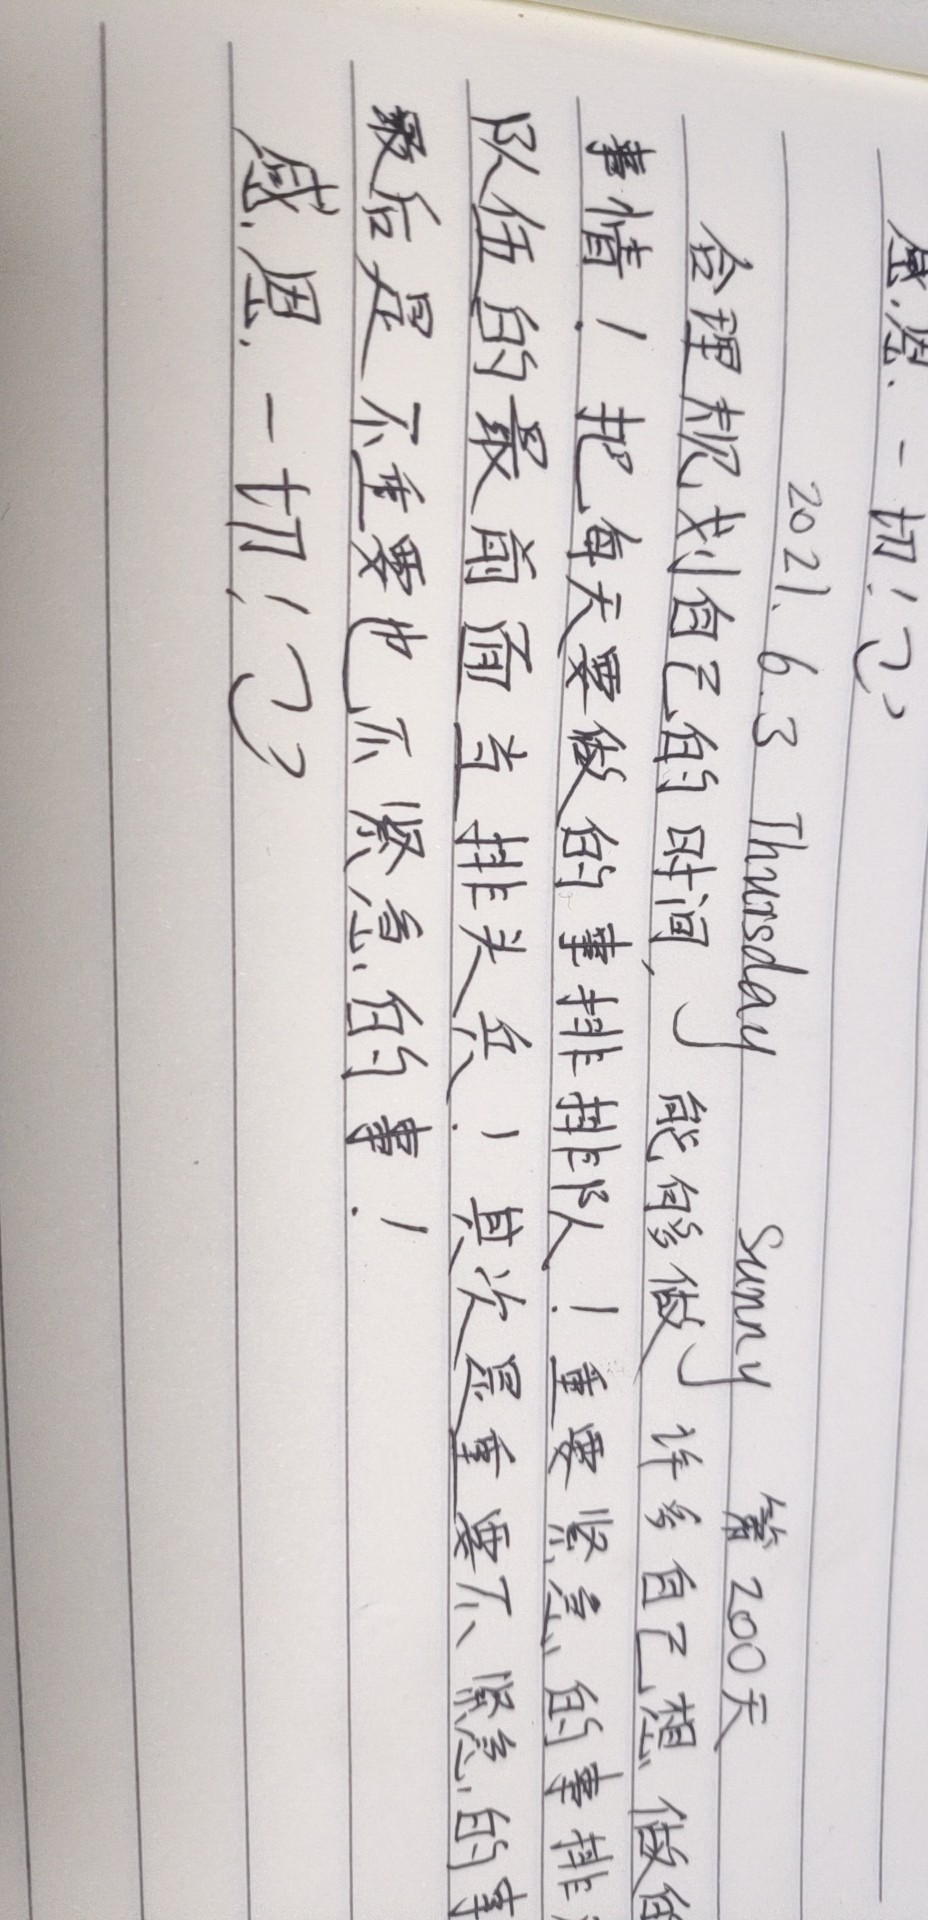 感恩一切!
2021.6.3 Thursday Sunny 第200天
合理规划自己的时间,了能够做了许多自己想做
事情!把每天要做的事排排队!重要紧急的事排
队伍的最前面当排头兵!其次是重要不紧急的事
最后是不重要也不紧急的事!
感恩一切!